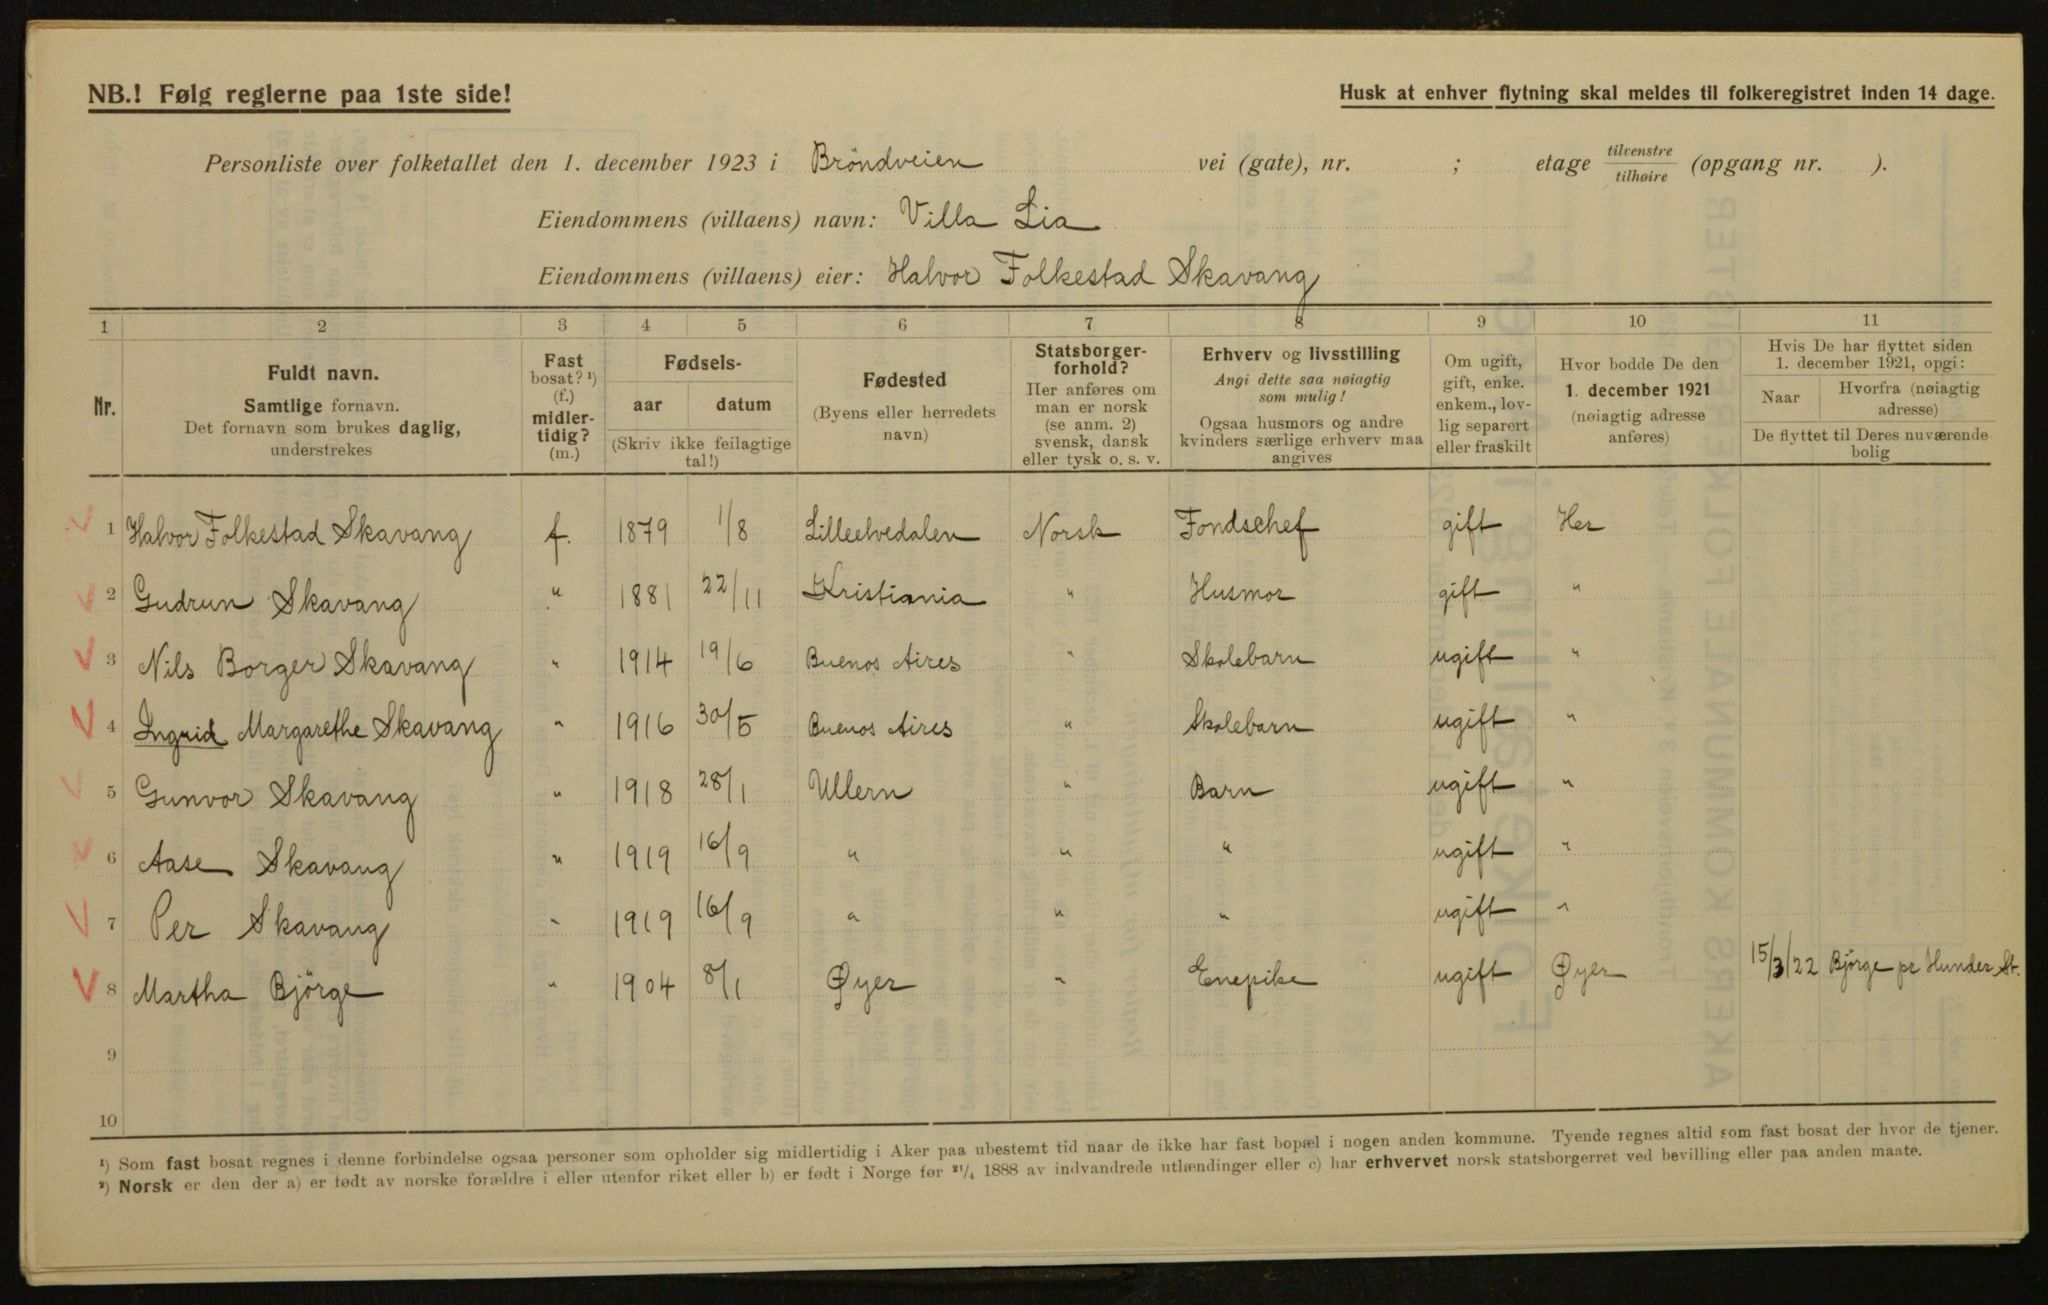 NB.! Følg reglerne paa 1ste side!
Husk at enhver flytning skal meldes til folkeregistret inden 14 dage.
Personliste over folketallet den 1. december 1923 i Bröndveien vei (gate), nr. ; etage tilvenstre/tilhøire (opgang nr. ).
Eiendommens (villaens) navn: Villa Lia
Eiendommens (villaens) eier: Halvor Folkestad Skavang
1 2 3 4 5 6 7 8 9 10 11
Nr.
Fuldt navn.
Samtlige fornavn.
Det fornavn som brukes daglig,
understrekes
Fast
bosat? ¹)
(f.)
midler-
tidig?
(m.)
Fødsels-
aar datum
(Skriv ikke feilagtige
tal!)
Fødested
(Byens eller herredets
navn)
Statsborger-
forhold?
Her anføres om
man er norsk
(se anm. 2)
svensk, dansk
eller tysk o. s. v.
Erhverv og livsstilling
Angi dette saa nøiagtig
som mulig!
Ogsaa husmors og andre
kvinders særlige erhverv maa
angives
Om ugift,
gift, enke.
enkem., lov-
lig separert
eller fraskilt
Hvor bodde De den
1. december 1921
(nøiagtig adresse
anføres)
Hvis De har flyttet siden
1. december 1921, opgi:
Naar
Hvorfra (nøiagtig
adresse)
De flyttet til Deres nuværende
bolig
1 Halvor Folkestad Skavang f. 1879 1/8 Lilleelvedalen Norsk Fondschef gift Her
2 Gudrun Skavang " 1881 22/11 Kristiania " Husmor gift "
3 Nils Borger Skavang " 1914 19/6 Buenos Aires " Skolebarn ugift "
4 Ingrid Margarethe Skavang " 1916 30/5 Buenos Aires " Skolebarn ugift "
5 Gunvor Skavang " 1918 28/1 Ullern " Barn ugift "
6 Aase Skavang " 1919 16/9 " " " ugift "
7 Per Skavang " 1919 16/9 " " " ugift "
8 Martha Björge " 1904 8/1 Øyer " Enepike ugift Øyer 15/3/22 Björge pr Hunder St.
9
10
¹) Som fast bosat regnes i denne forbindelse ogsaa personer som opholder sig midlertidig i Aker paa ubestemt tid naar de ikke har fast bopæl i nogen anden kommune. Tyende regnes altid som fast bosat der hvor de tjener.
²) Norsk er den der a) er født av norske forældre i eller utenfor riket eller b) er født i Norge før ²¹/₄ 1888 av indvandrede utlændinger eller c) har erhvervet norsk statsborgerret ved bevilling eller paa anden maate.